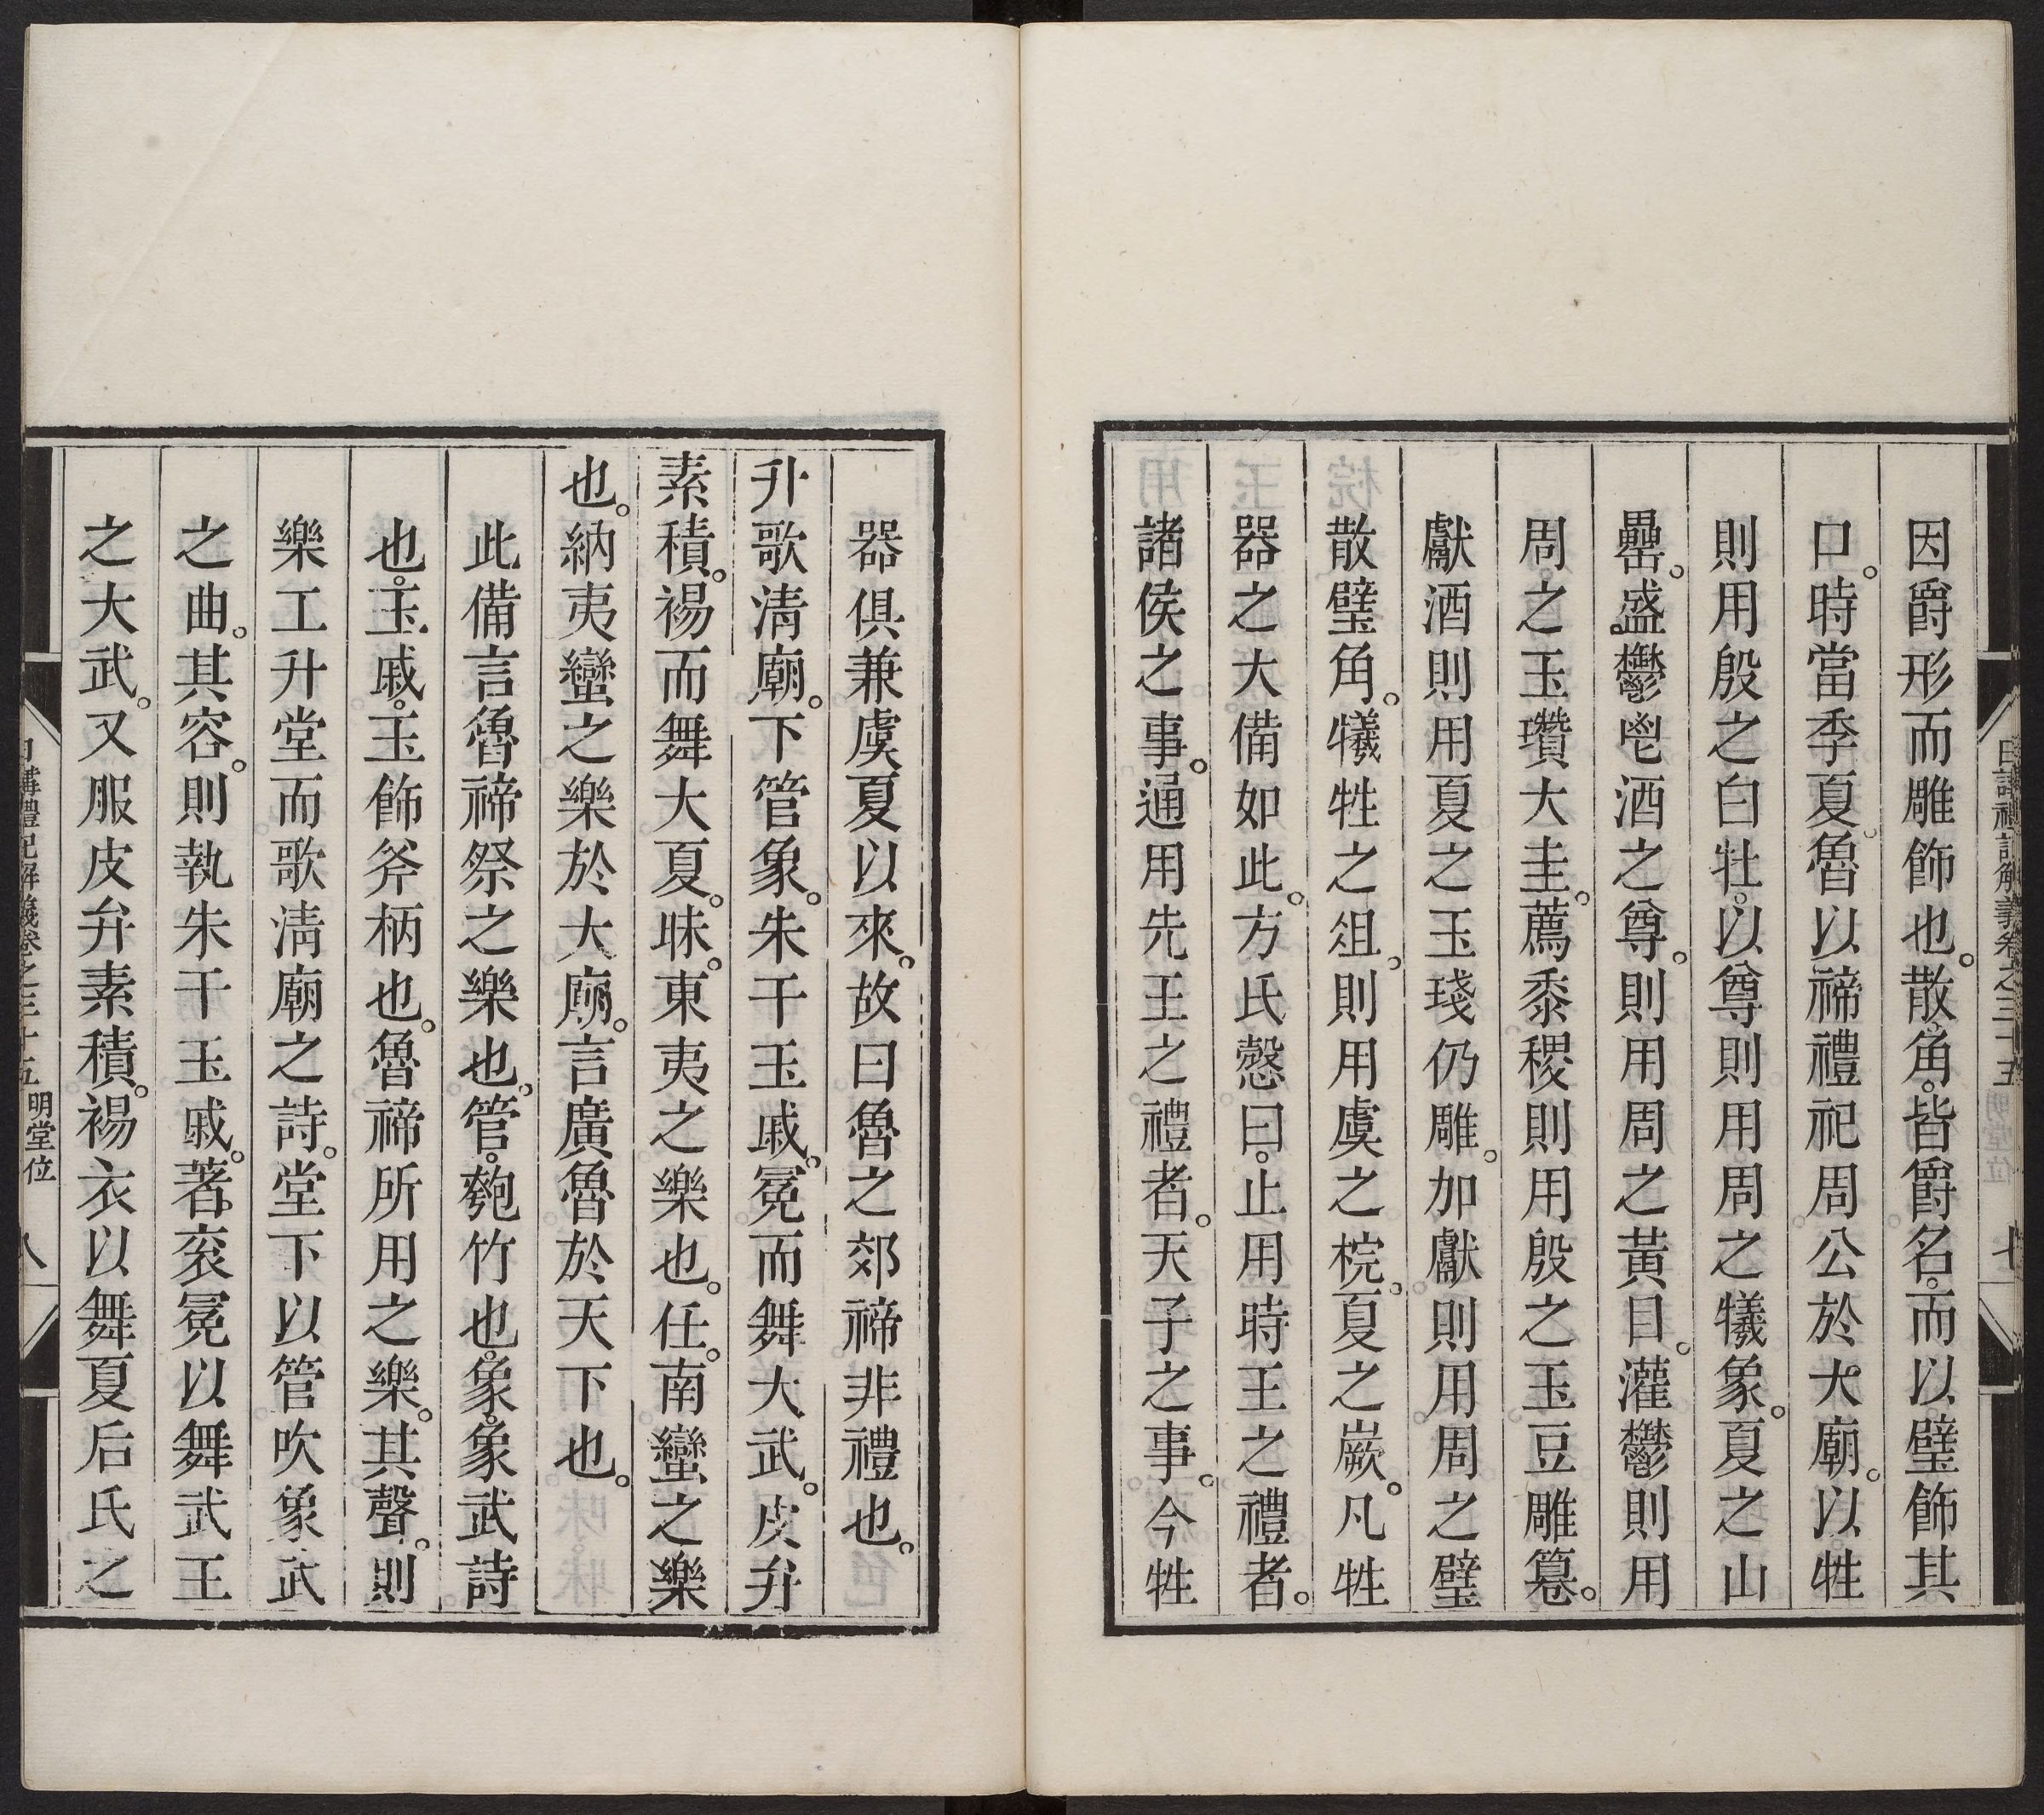 日講禮記解義卷之三十五 明堂位 七
因爵形而雕飾也。散角。皆爵名。而以璧飾其
口。時當季夏。魯以禘禮祀周公於大廟。以牲
則用殷之白牡。以尊則用周之犧象。夏之山
罍。盛鬱鬯酒之尊。則用周之黃目。灌鬱則用
周之玉瓚大圭。薦黍稷則用殷之玉豆雕篹。
獻酒則用夏之玉琖仍雕。加獻則用周之璧
散璧角。犧牲之俎。則用虞之梡。夏之嶡。凡牲
器之大備如此。方氏慤曰。止用時王之禮者。
諸侯之事。通用先王之禮者。天子之事。今牲
器俱兼虞夏以來。故曰魯之郊禘非禮也。
升歌淸廟。下管象。朱干玉戚。冕而舞大武。皮弁
素積。裼而舞大夏。昧。東夷之樂也。任。南蠻之樂
也。納夷蠻之樂於大廟。言廣魯於天下也。
此備言魯禘祭之樂也。管。匏竹也。象。象武詩
也。玉戚。玉飾斧柄也。魯禘所用之樂。其聲。則
樂工升堂而歌淸廟之詩。堂下以管吹象武
之曲。其容。則執朱干玉戚。著袞冕以舞武王
之大武。又服皮弁素積。裼衣以舞夏后氏之
日講禮記解義卷之三十五 明堂位 八